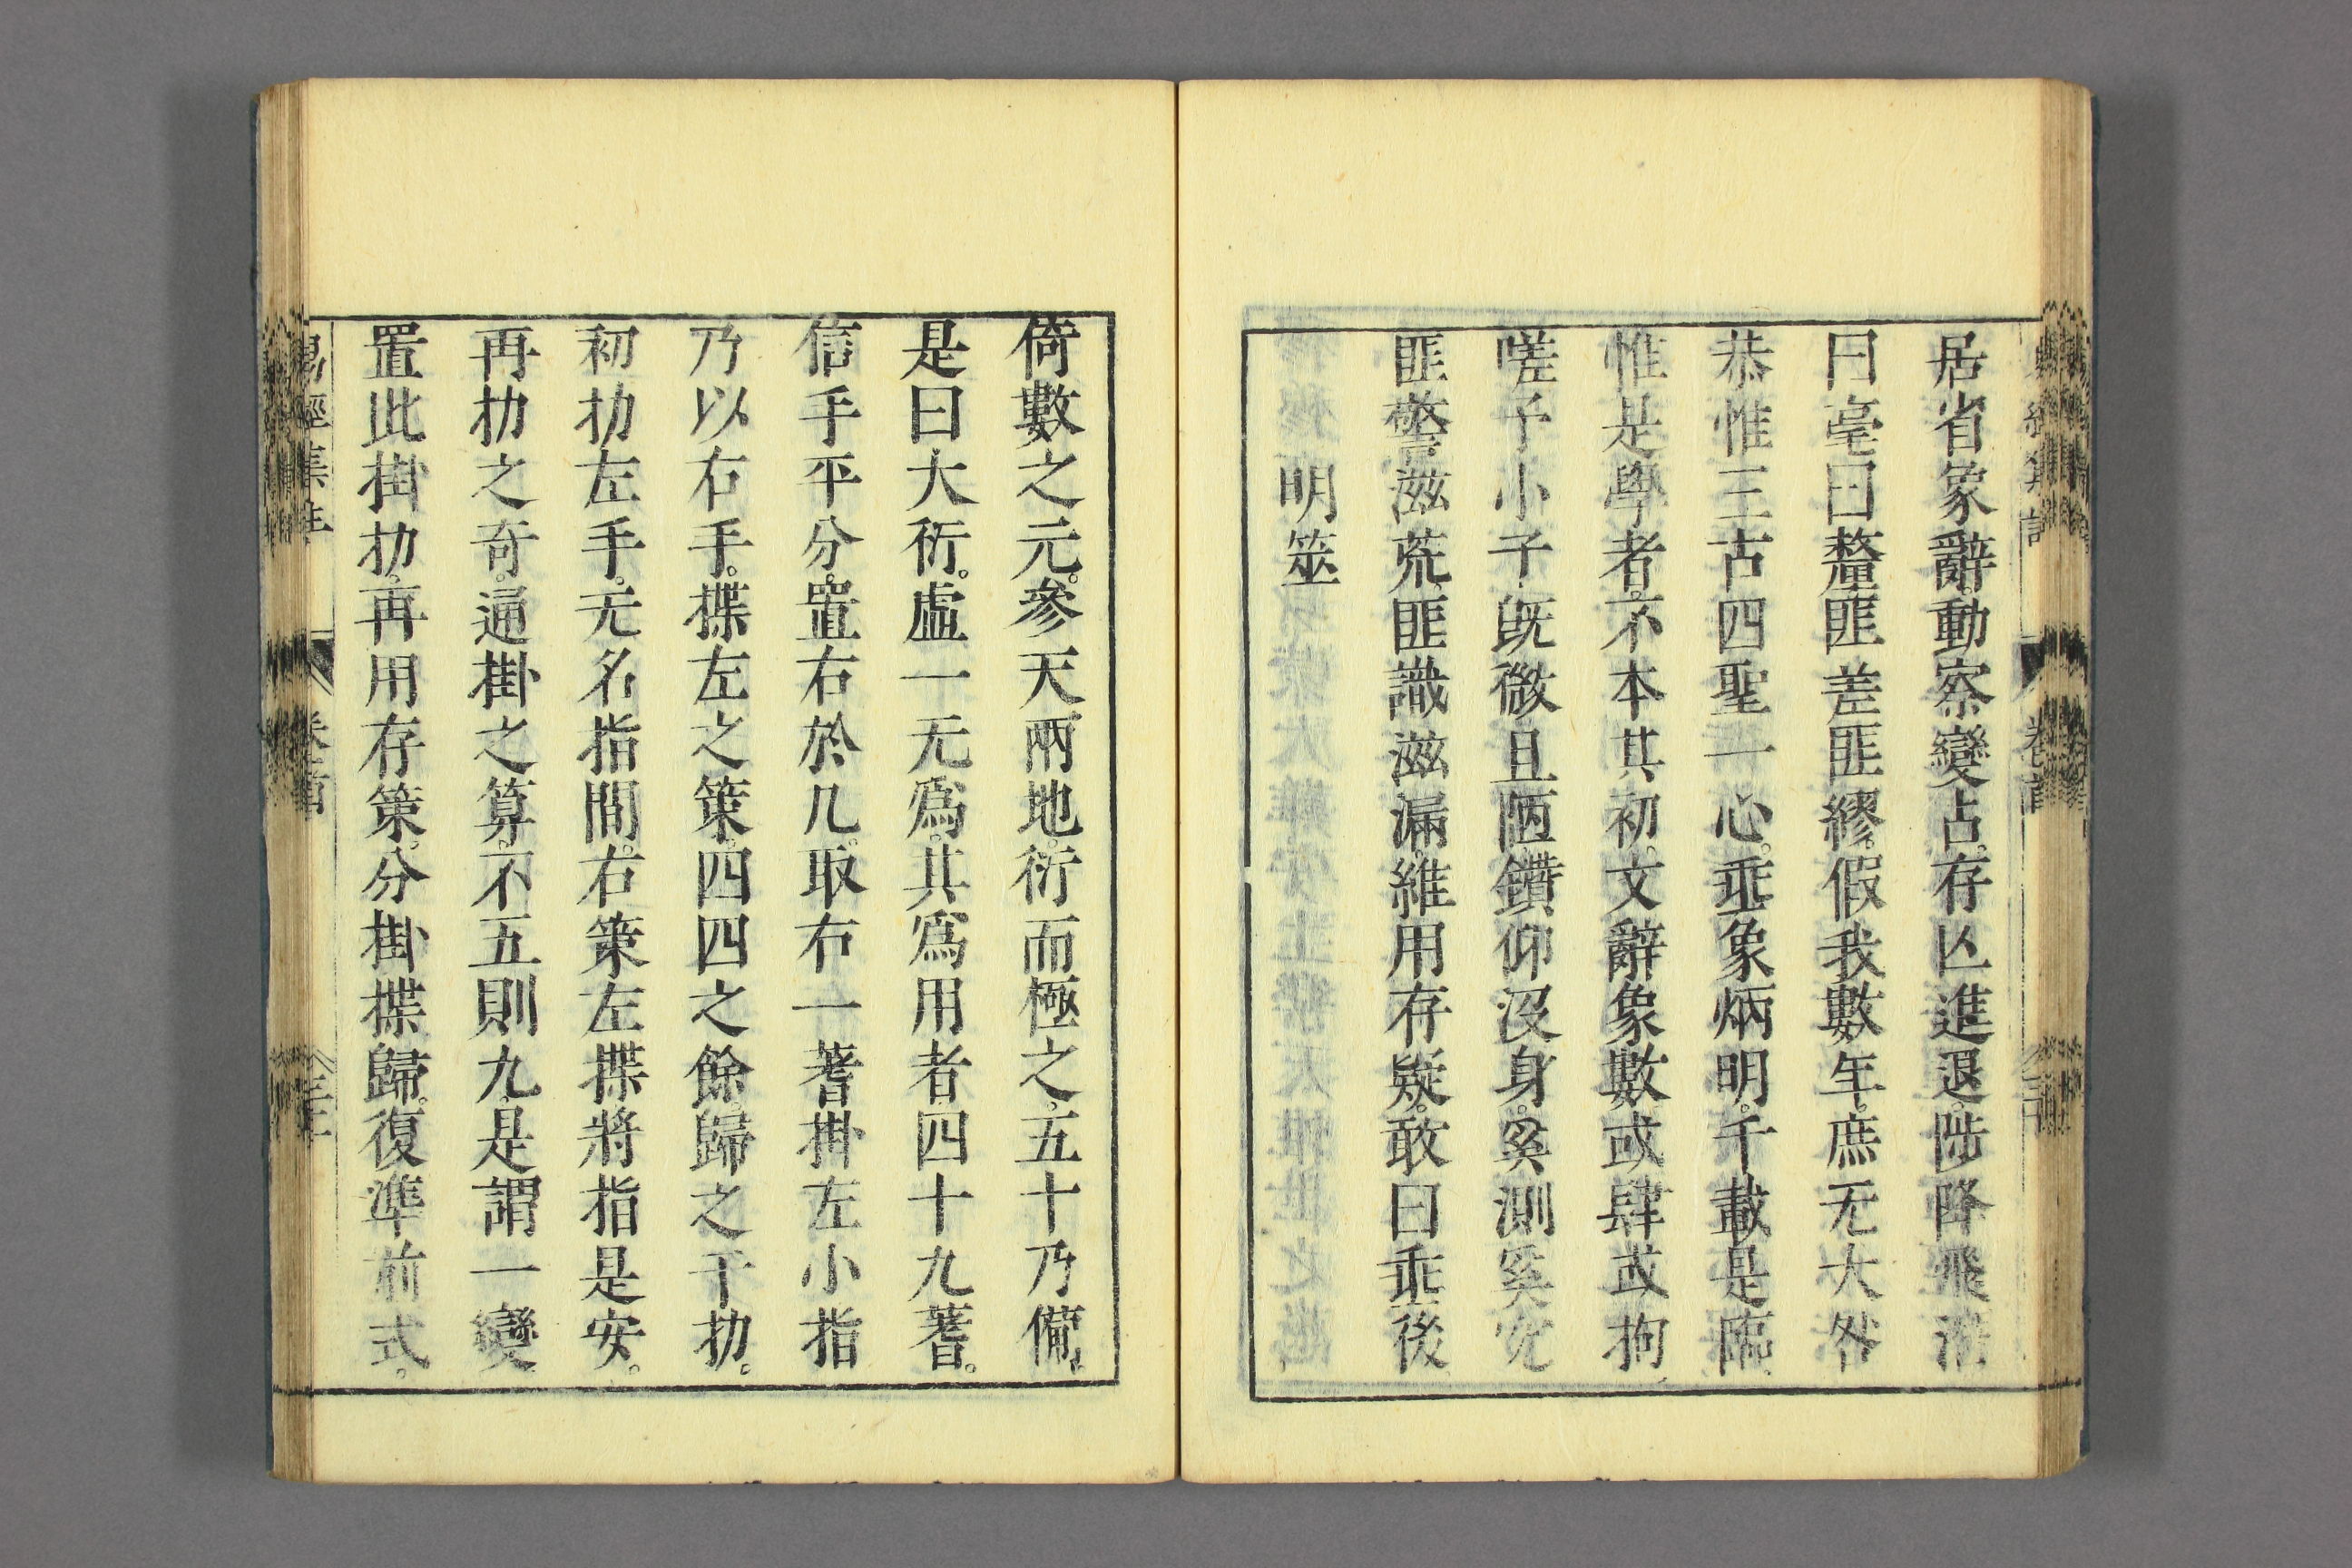 居省象辭。動察變占。存亾進退。陟降飛潛
曰毫曰釐。匪差匪繆。假我數年。庶无大咎
恭惟三古。四聖一心。垂象炳明。千載是臨
惟是學者。不本其初。文辭象數。或肆或拘
嗟予小子。旣微且陋。鑽仰沒身。奚測奚究
匪警滋荒。匪識滋漏。維用存疑。敢曰垂後
明筮
倚數之元。參天兩地。衍而極之。五十乃備。
是曰大衍。虛一无爲。其爲用者。四十九蓍。
信手平分。置右於几。取右一蓍。掛左小指
乃以右手。揲左之策。四四之餘。歸之于扐。
初扐左手。无名指間。右策左揲。將指是安。
再扐之奇。通掛之算。不五則九。是謂一變
置此掛扐。再用存策。分掛揲歸。復準前式。
易經集註
卷首